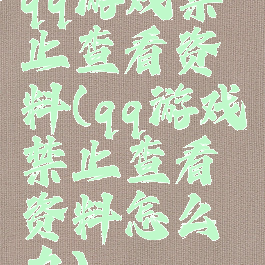 qq游戏禁
止查看资
料(qq游戏
禁止查看
资料怎么